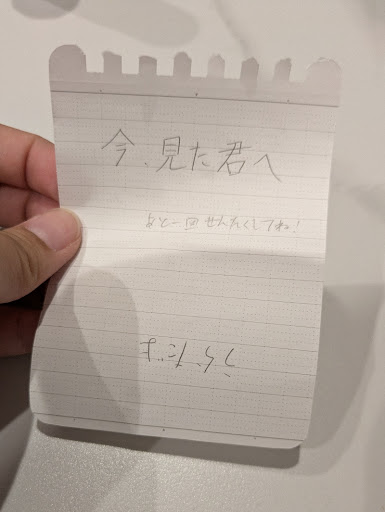 今、見た君へ
あと一回せんたくしてね!
うらだよ